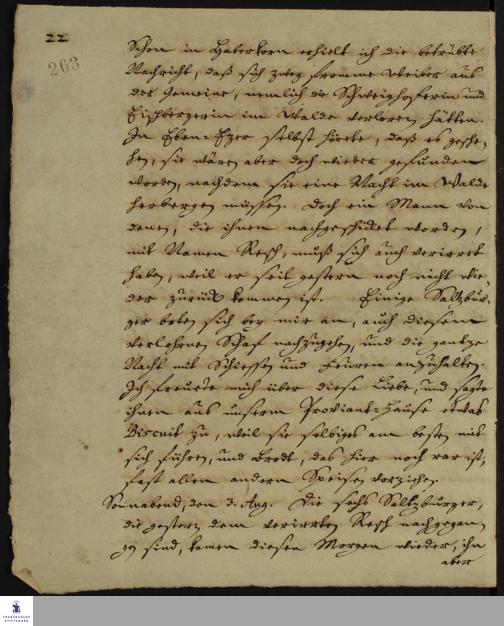 22
263
Schon in Haberkorn erhielt ich die betrübte
Nachricht, daß sich zweÿ fromme Weiber aus
der Gemeine, nemlich die Schweighoferin und
Eischbergerin im Walde verloren hätten.
In Eben-Ezer selbst hörete, daß es gesche-
hen, sie wären aber doch wieder gefunden
worden, nachdem sie eine Nacht im Walde
herbergen müssen. Doch ein Mann von
denen, die ihnen nachgeschickt worden,
mit Namen Resch, muß sich auch verirret
haben, weil er seit gestern noch nicht wie-
der zurück kommen ist. Einige Saltzbur-
ger boten sich beÿ mir an, auch diesem
verlohrnen Schaf nachzugehen, und die gantze
Nacht mit Schiessen und Feuren anzuhalten.
Ich freuete mich über diese Liebe, und sagte
ihnen aus unserm Proviant-Hause etwas
Biscuit zu, weil sie selbiges am besten mit
sich führen, und Brodt, das hier noch rar ist,
fast allen andern Speisen vorziehen.
Sonnabend, den 3. Aug. Die sechs Saltzburger,
die gestern dem verirrten Resch nachgegan-
gen sind, kamen diesen Morgen wieder, ihn
aber
FRANCKESCHE
STIFTUNGEN